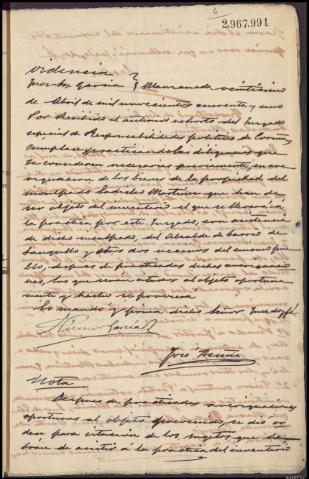 6
2.967.991
Providencia
Juez Sr. Garcia } Manzaneda veintiseis
de Abril de mil novecientos cuarenta y uno
Por recibido el anterior exhorto del Juzgado
especial de Responsabilidades politicas de
cumplase practicandose las diligencias que
se consideran necesarias previamente, para
averiguacion de los bienes de la propiedad del
inculpado Ladislao Martinez que han de
ser objeto del inventario del que se llevará a
la practica por este Juzgado, con asistencia
de dicho inculpado, del Alcalde de barrio de
y otros dos vecinos del mismo pue
blo, despues de practicadas dichas averiguacio
nes, los que seran citados al objeto oportuna
mente y hecho se proveera
Lo mando y firma dicho Señor Juez doy fé.
Garcia
José
Nota
Despues de practicadas averiguaciones
oportunas al objeto precedente, se dio or
den para citacion de los sujetos que ha
brán de asistir a la practica del inventario